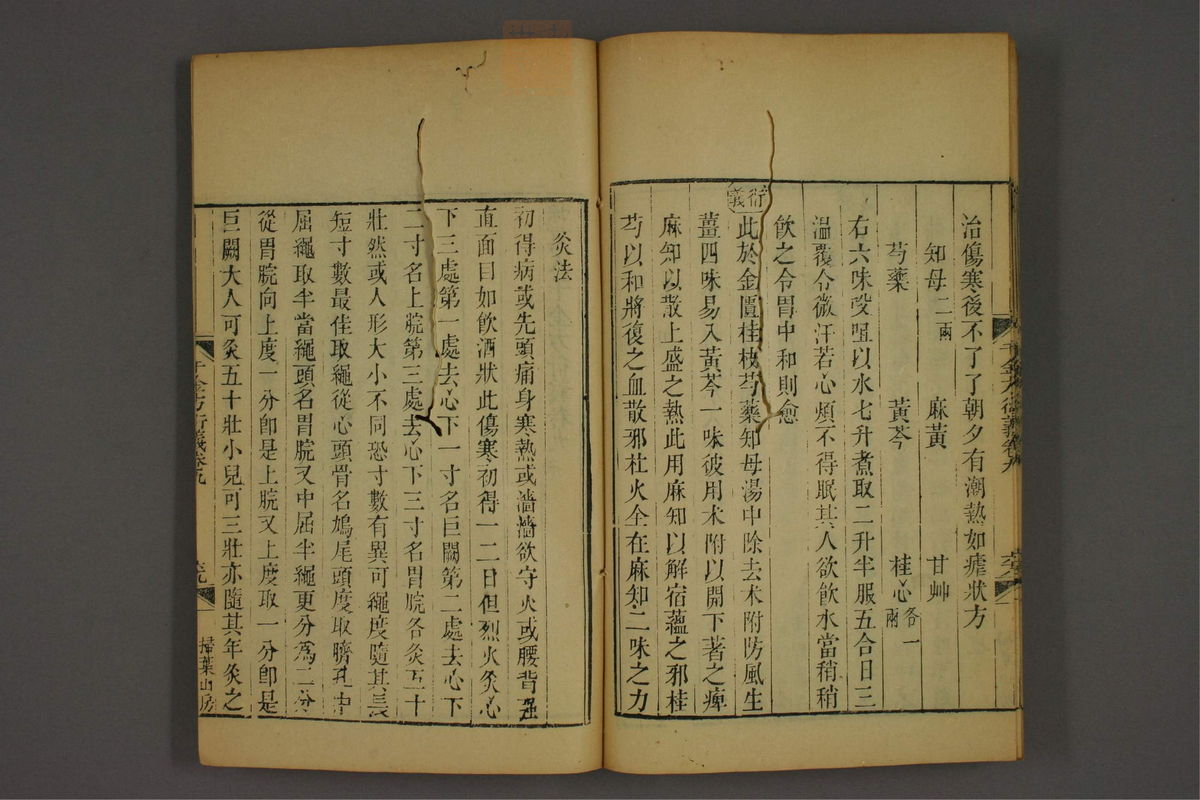 治傷寒後不了了朝夕有潮熱如瘧狀方
知母二兩 麻黃 甘艸
芍藥 黃芩 桂心各一兩
右六味㕮咀以水七升煮取二升半服五合日三
溫覆令微汗若心煩不得眠其人欲飲水當稍稍
飲之令胃中和則愈
衍義
此於金匱桂枝芍藥知母湯中除去朮附防風生
薑四味易入黃芩一味彼用朮附以開下著之痺
麻知以散上盛之熱此用麻知以解宿蘊之邪桂
芍以和將復之血散邪杜火全在麻知二味之力
千金方衍義卷九
灸法
初得病或先頭痛身寒熱或濇濇欲守火或腰背强
直面目如飲酒狀此傷寒初得一二日但烈火灸心
下三處第一處去心下一寸名巨闕第二處去心下
二寸名上脘第三處去心下三寸名胃脘各灸五十
壯然或人形大小不同恐寸數有異可繩度隨其長
短寸數最佳取繩從心頭骨名鳩尾頭度取臍孔中
屈繩取半當繩頭名胃脘又中屈半繩更分爲二分
從胃脘向上度一分卽是上脘又上度取一分卽是
巨闕大人可灸五十壯小兒可三壯亦隨其年灸之
千金方衍義卷九
掃葉山房